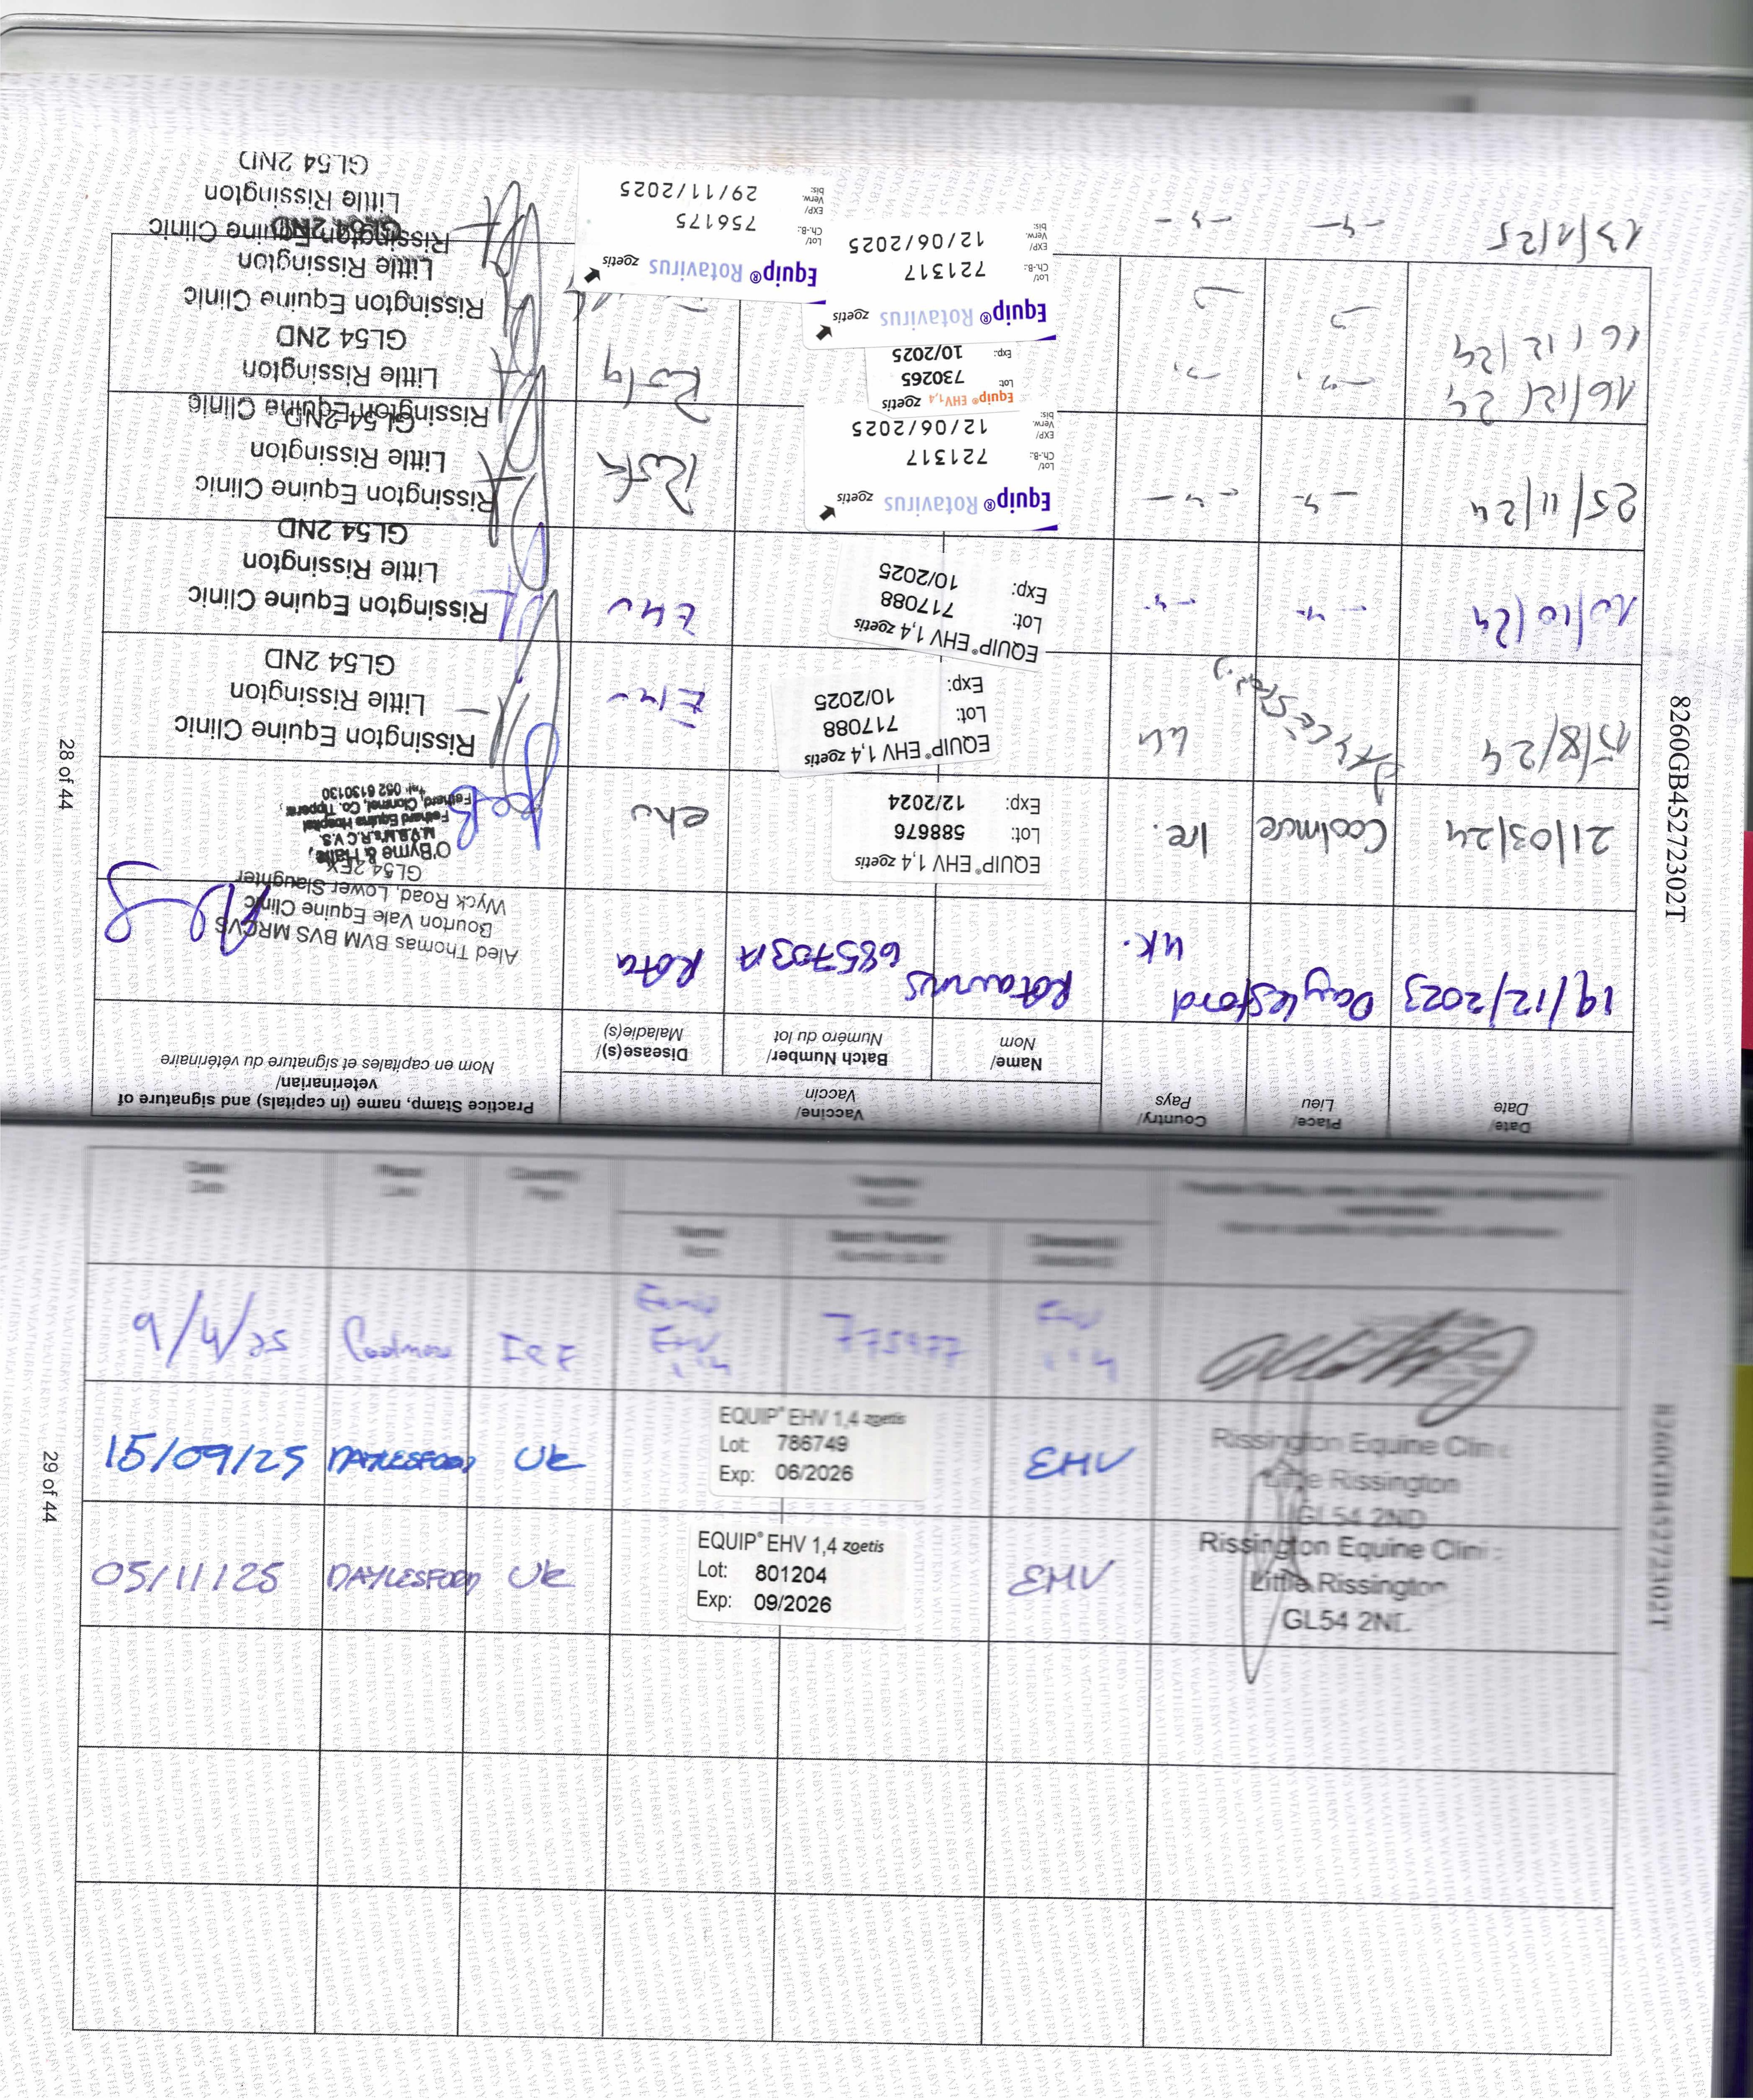 Date/
Date
Place/
Lieu
Country/
Pays
Vaccine/
Vaccin
Name/
Nom
Batch Number/
Numéro du lot
Disease(s)/
Maladie(s)
Practice Stamp, name (in capitals) and signature of
veterinarian/
Nom en capitales et signature du vétérinaire
19/12/2023 Daylesford UK. Rotavirus 685703A Rota
Aled Thomas BVM BVS MRCVS
Bourton Vale Equine Clinic
Wyck Road, Lower Slaughter
GL54 2EX
21/03/24 Coolmore Ire. ehv
EQUIP® EHV 1,4 zoetis
Lot: 588676
Exp: 12/2024
O'Byrne & Halle,
M.V.B.M's.R.C.V.S.
Fethard Equine Hospital
Fethard, Clonmel, Co. Tipperary
Tel: 052 6130130
15/8/24 UK EHV
EQUIP® EHV 1,4 zoetis
Lot: 717088
Exp: 10/2025
Rissington Equine Clinic
Little Rissington
GL54 2ND
10/10/24 EHV
EQUIP® EHV 1,4 zoetis
Lot: 717088
Exp: 10/2025
Rissington Equine Clinic
Little Rissington
GL54 2ND
25/11/24
Equip® Rotavirus zoetis
Lot/
Ch.-B.: 721317
EXP/
Verw.
bis: 12/06/2025
Rissington Equine Clinic
Little Rissington
GL54 2ND
16/12/24
Equip® EHV1,4 zoetis
Lot: 730265
Exp: 10/2025
Rissington Equine Clinic
Little Rissington
GL54 2ND
16/12/24
Equip® Rotavirus zoetis
Lot/
Ch.-B.: 721317
EXP/
Verw.
bis: 12/06/2025
Rissington Equine Clinic
Little Rissington
GL54 2ND
13/1/25
Equip® Rotavirus zoetis
Lot/
Ch.-B.: 756175
EXP/
Verw.
bis: 29/11/2025
Rissington Equine Clinic
Little Rissington
GL54 2ND
28 of 44
8260GB45272302T
Date/
Date
Place/
Lieu
Country/
Pays
Vaccine/
Vaccin
Name/
Nom
Batch Number/
Numéro du lot
Disease(s)/
Maladie(s)
9/4/25 Coolmore IRE EHV 1,4 775977 EHV 1,4
15/09/25 DAYLESFORD UK EHV
EQUIP® EHV 1,4 zoetis
Lot: 786749
Exp: 06/2026
Rissington Equine Clinic
Little Rissington
GL54 2ND
05/11/25 DAYLESFORD UK EHV
EQUIP® EHV 1,4 zoetis
Lot: 801204
Exp: 09/2026
Rissington Equine Clini
Little Rissington
GL54 2ND
29 of 44
8260GB45272302T